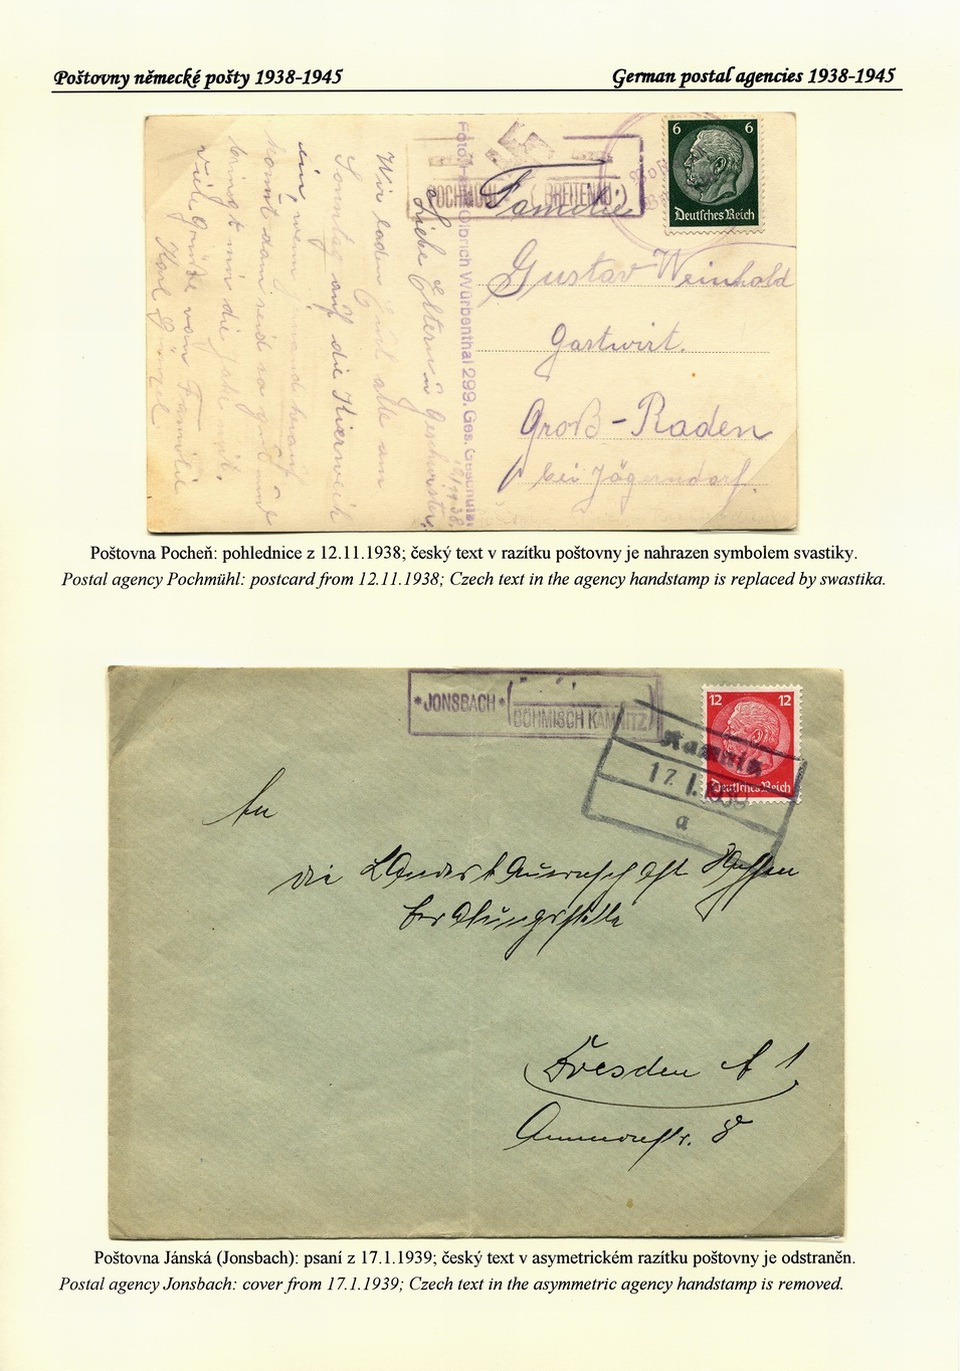 Poštovny německé pošty 1938-1945 German postal agencies 1938-1945
POCHMÜHL * (BREITENAU)
6 6
Deutsches Reich
Familie
Gustav Weinhold
Gastwirt.
Groß-Raden
bei Jägerndorf.
Olbrich Würbenthal 299. Ges. Geschützt
Liebe Eltern u Geschwister,
12/11 38.
Wir laden Euch alle am
Sonntag auf die Kierweih
ein, wenn jemand herauf
kommt dann seid so gut und
bringt mir die Jake mit.
Viele Grüße von Familie
Karl
Poštovna Pocheň: pohlednice z 12.11.1938; český text v razítku poštovny je nahrazen symbolem svastiky.
Postal agency Pochmühl: postcard from 12.11.1938; Czech text in the agency handstamp is replaced by swastika.
*JONSBACH*
(BÖHMISCH KAMNITZ)
12 12
Deutsches Reich
Kamnitz
17.1.1939
a
An
die
Beratungsstelle
Dresden A 1
Ammonstr. 8
Poštovna Jánská (Jonsbach): psaní z 17.1.1939; český text v asymetrickém razítku poštovny je odstraněn.
Postal agency Jonsbach: cover from 17.1.1939; Czech text in the asymmetric agency handstamp is removed.